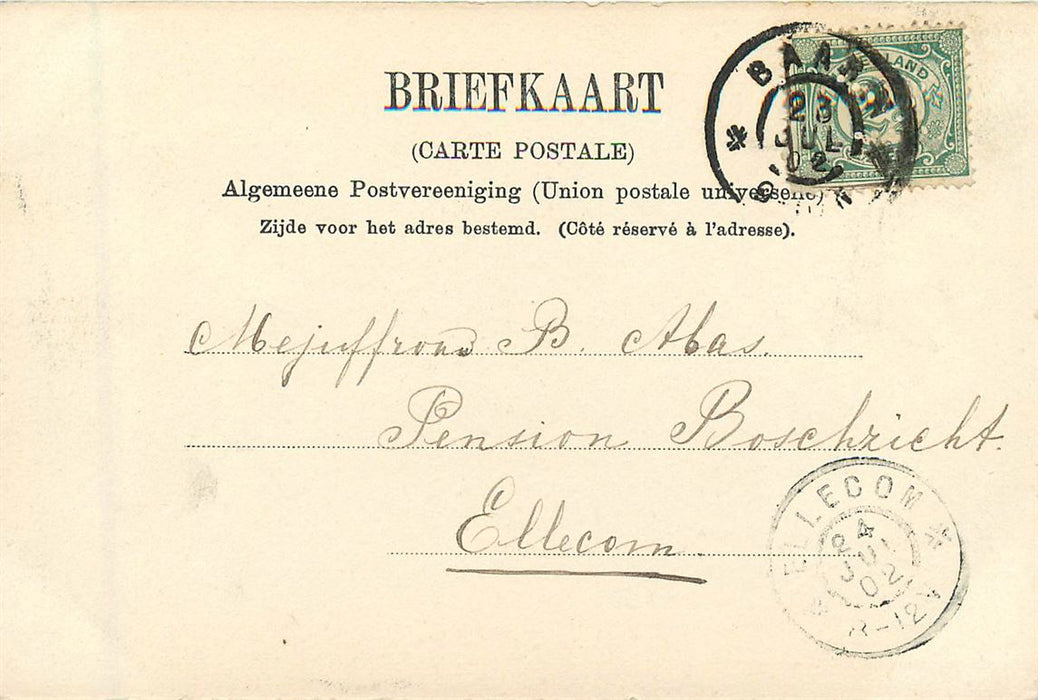 BRIEFKAART
(CARTE POSTALE)
Algemeene Postvereeniging (Union postale universelle)
Zijde voor het adres bestemd. (Côté réservé à l'adresse).
BAARN
23
JUL
02
LAND
Mejuffrouw B. Abas.
Pension Boschzicht.
Ellecom.
ELLECOM
24
JUL
02